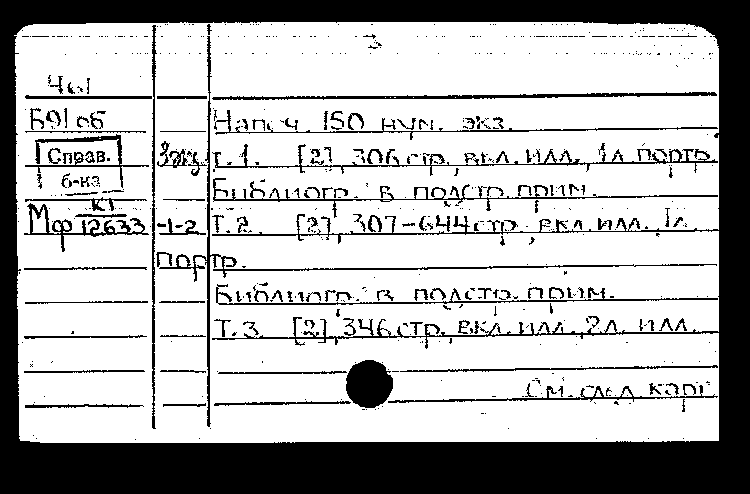 3
Ч61
Б91об
Напеч. 150 нум. экз.
Справ.
б-ка
3экз.
т. 1. [2], 306 стр., вкл. илл., 1л. портр.
Библиогр.: в подстр. прим.
Мф К1
12633 -1-2
Т. 2. [2], 307-644 стр., вкл. илл., 1л.
портр.
Библиогр.: в подстр. прим.
Т. 3. [2], 346 стр., вкл. илл., 2л. илл.
См. след. карт.